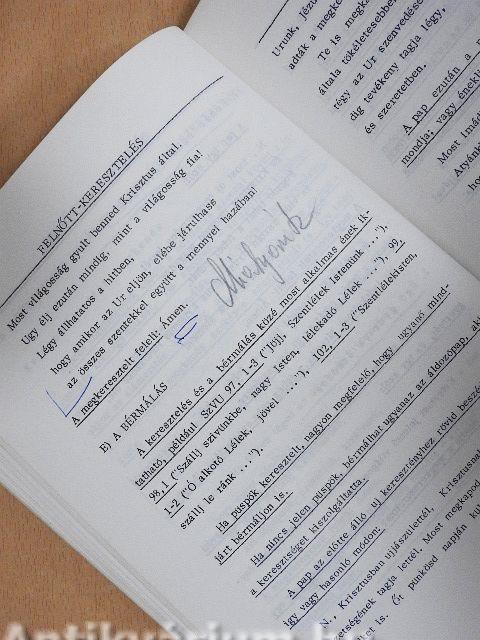 FELNŐTT-KERESZTELÉS
Most világosság gyúlt benned Krisztus által.
Úgy élj ezután mindig, mint a világosság fia!
Légy állhatatos a hitben,
hogy amikor az Úr eljön, elébe járulhass
az összes szentekkel együtt a mennyei hazában!
A megkeresztelt felel: Ámen.
Miatyánk
E) A BÉRMÁLÁS
A keresztelés és a bérmálás közé most alkalmas ének ik-
tatható, például SzVU 97, 1-3 ("Jöjj, Szentlélek Istenünk ..."),
98,1 ("Szállj szívünkbe, nagy Isten, lélekadó Lélek ..."), 99,
1-2 ("Ó alkotó Lélek, jövel ..."), 102, 1-3 ("Szentlélekisten,
szállj le ránk ...").
Ha püspök keresztelt, nagyon megfelelő, hogy ugyanő mind-
járt bérmáljon is.
Ha nincs jelen püspök, bérmálhat ugyanaz az áldozópap, aki
a keresztséget kiszolgáltatta.
A pap az előtte álló új keresztényhez rövid beszé
így vagy hasonló módon:
N. Krisztusban újjászülettél. Krisztusnak
etségének tagja lettél. Most megkapod
et is. Őt pünkösd napján kül
Urunk, Jézu
adták a megke
Te is megka
általa tökéletesebbe
tégy az Úr szenvedése
dig tevékeny tagja légy,
és szeretetben.
A pap ezután a
mondja; vagy énekli
Most imád
Atyánk
ho
Antikvárium.hu